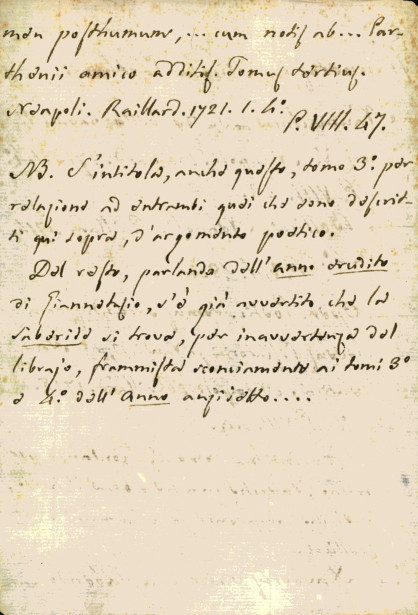 men posthumum, ... cum notis ab ... Par-
thenii amico additis. Tomus tertius.
Neapoli. Raillard. 1721. 1. 4.°
P. VIII. 47.
NB. S'intitola, anche questo, tomo 3.° per
relazione ad entrambi quei che sono descrit-
ti qui sopra, d'argomento poetico.
Del resto, parlando dell'anno erudito
di Giannettasio, s'è già avvertito che la
saberide si trova, per inavvertenza del
librajo, frammista sconciamente ai tomi 3°
e 4.° dell'Anno anzidetto....